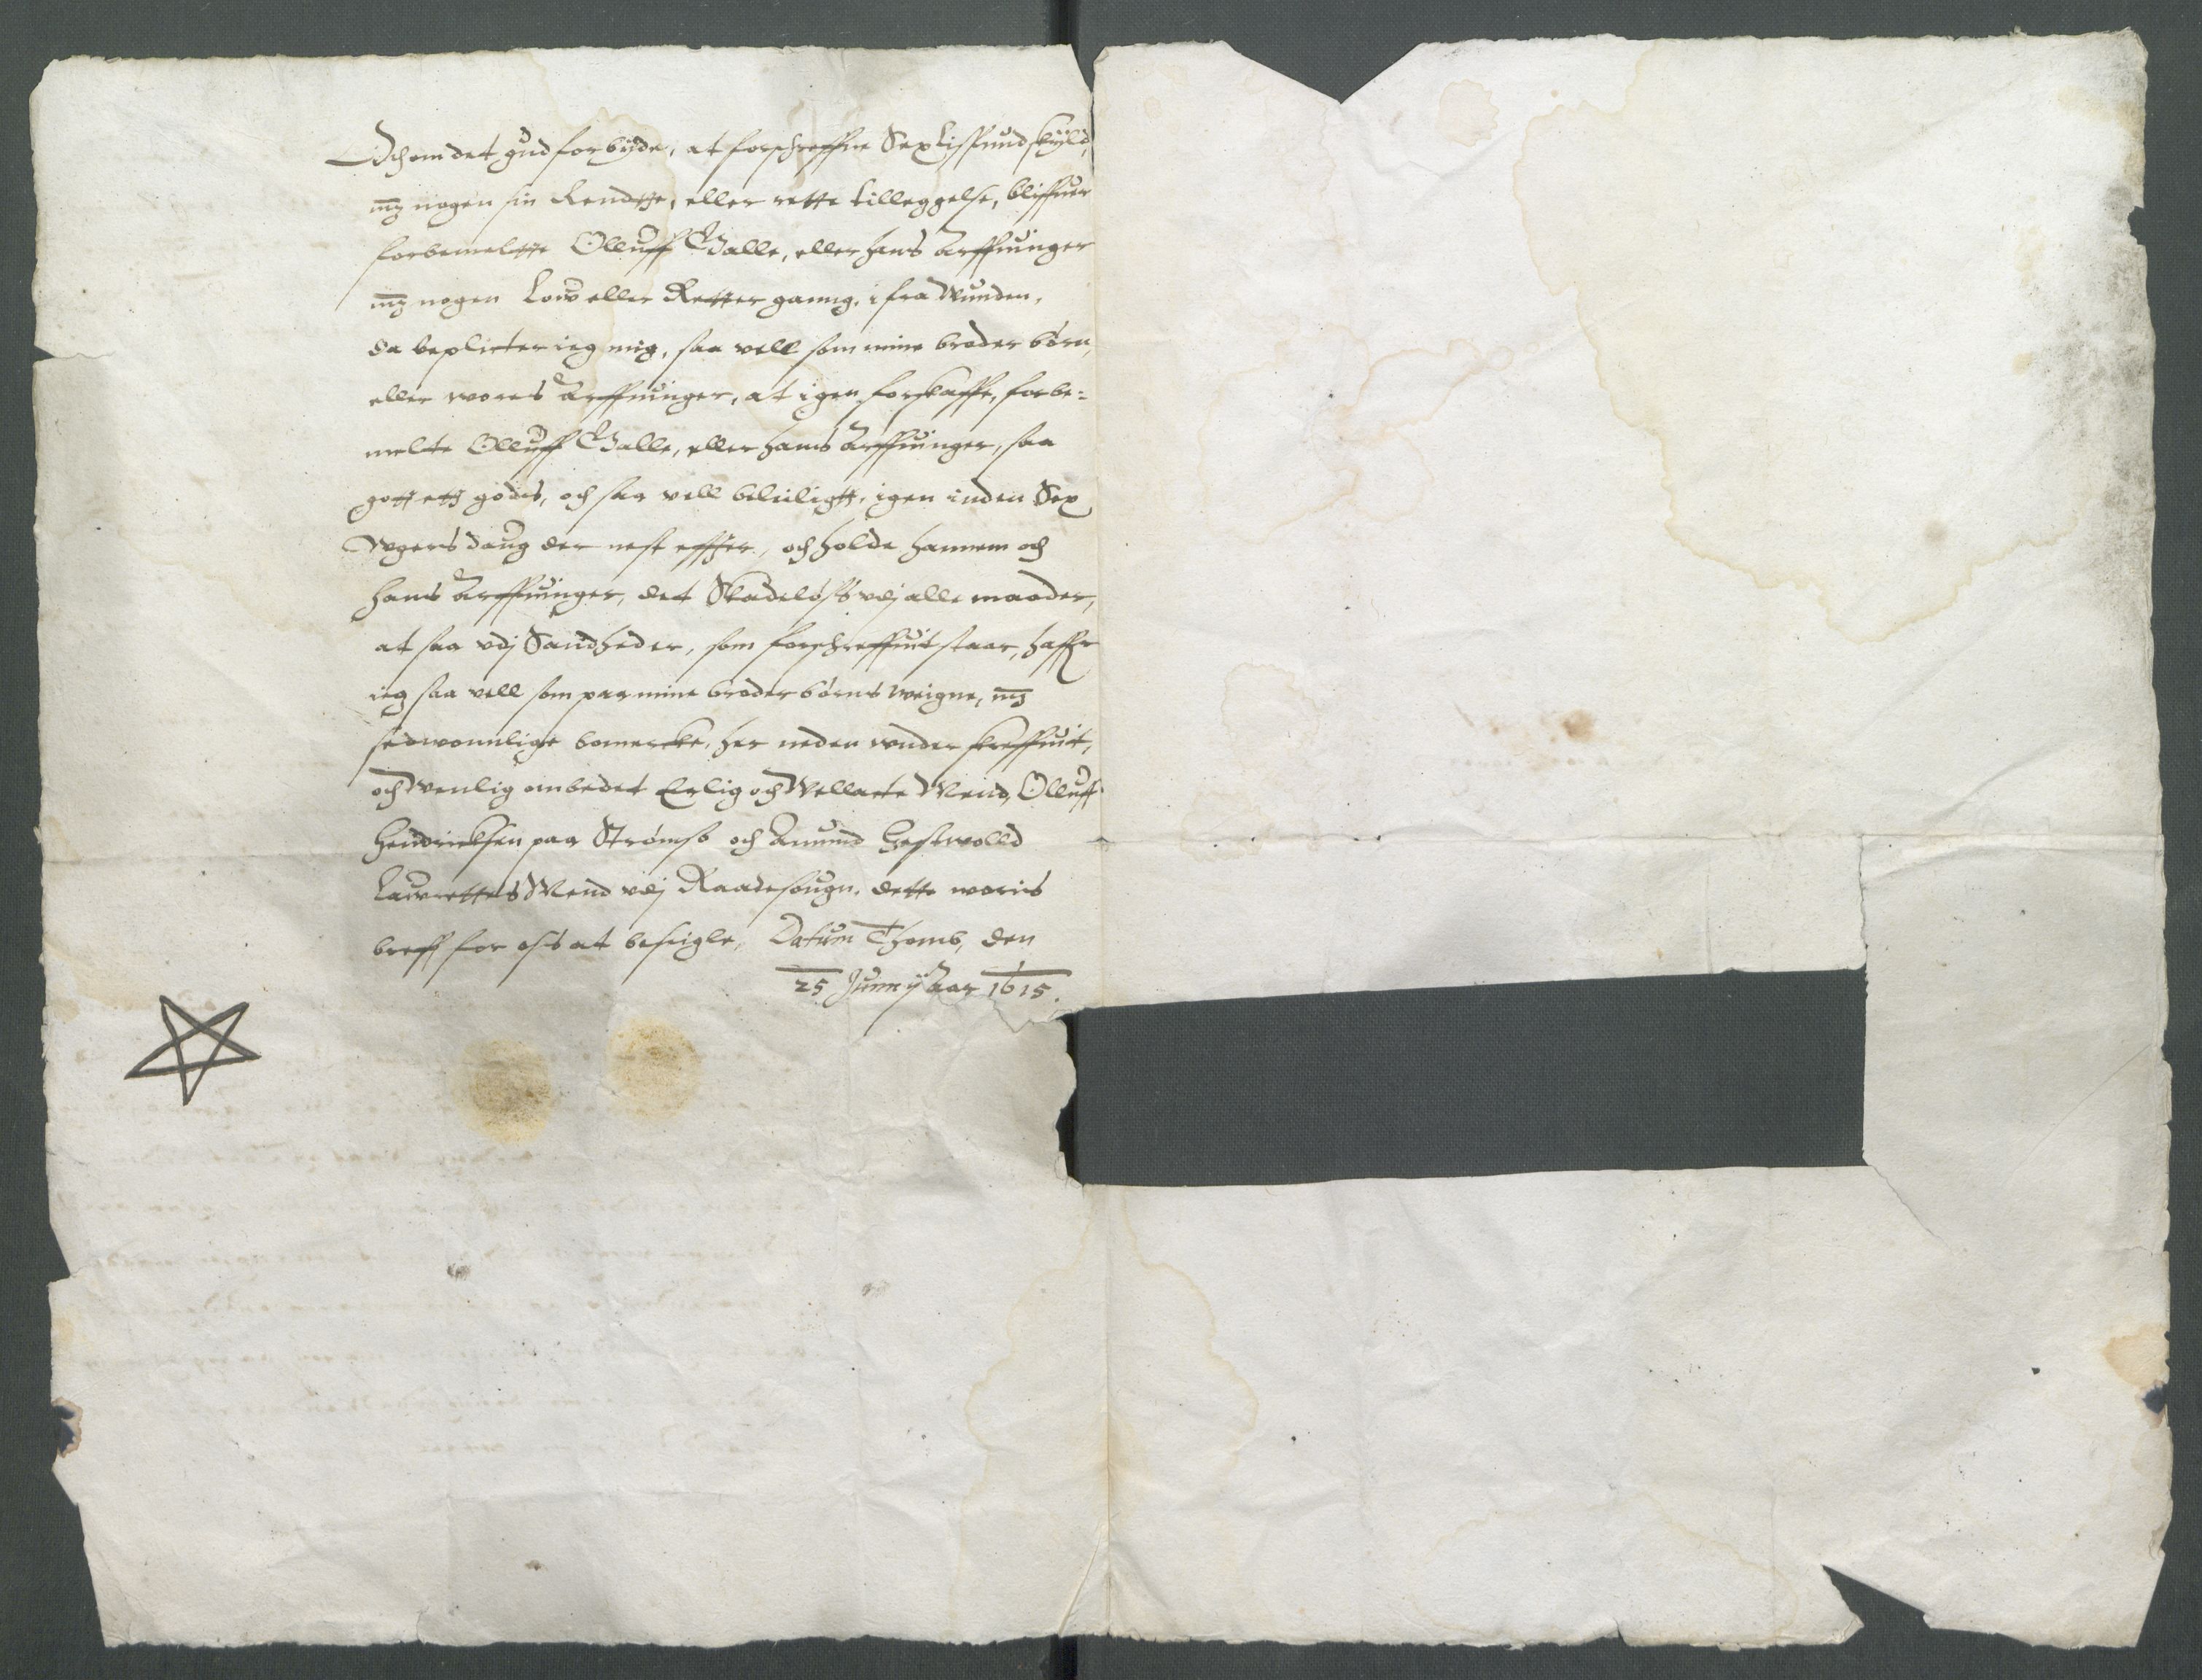 Och om det gud forbyde, at forschreffne Sex Lispund skyld,
mz nogen sin Rendtte, eller rette tilleggelse, bliffuer
forbemeltte Olluff Galle, eller hans Arffuinger
mz nogen Low eller Retter ganng, ifra Wunden,
da beplicter ieg mig, saa vell som mine broder børn,
eller wores Arffuinger, at igen forskaffe, forbe-
melte Olluff Galle, eller hans Arffuinger, saa
gott ett gods, och saa vell beliiligtt, igen inden Sex
Wgers daug der nest effther, och holde hannem och
hans Arffuinger, det Skadeløss vdj alle maader,
at saa vdj Sandhed er, som forschreffuit staar, haffr
ieg saa vell som paa mine broder børns weigne, mz
sedwonnlige bomercke, her neden wnder skreffuit,
och Wenlig ombedet Erlig och Wellacte Mend, Olluff
Hendricksen paa Strømsø och Amund Hestwolld
Lawrettes Mend vdj Raadesougn, dette woris
breff for oss at beseigle, Datum Thomb, den
25 Junny Aar 1615.